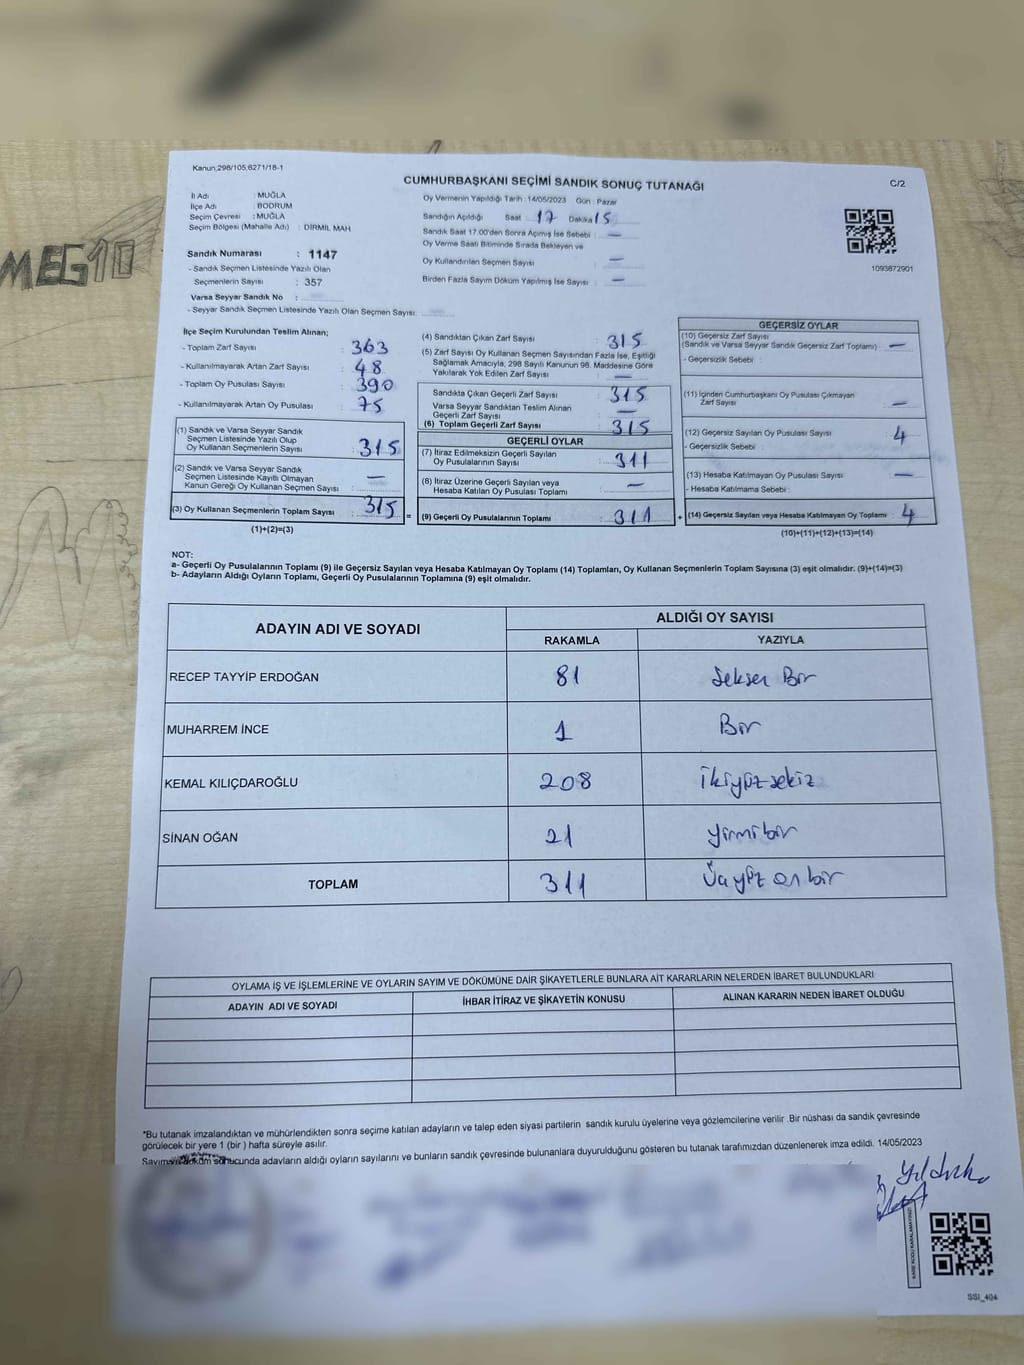 Kanun;298/105,6271/18-1
CUMHURBAŞKANI SEÇİMİ SANDIK SONUÇ TUTANAĞI
C/2
İl Adı : MUĞLA
İlçe Adı : BODRUM
Seçim Çevresi : MUĞLA
Seçim Bölgesi (Mahalle Adı) : DİRMİL MAH
Sandık Numarası : 1147
- Sandık Seçmen Listesinde Yazılı Olan
Seçmenlerin Sayısı : 357
Varsa Seyyar Sandık No :
- Seyyar Sandık Seçmen Listesinde Yazılı Olan Seçmen Sayısı:
Oy Vermenin Yapıldığı Tarih : 14/05/2023 Gün : Pazar
Sandığın Açıldığı Saat 17 Dakika 15
Sandık Saat 17.00'den Sonra Açımış İse Sebebi : —
Oy Verme Saati Bitiminde Sırada Bekleyen ve
Oy Kullandırılan Seçmen Sayısı : —
Birden Fazla Sayım Döküm Yapılmış İse Sayısı : —
1093872901
MEG10
İlçe Seçim Kurulundan Teslim Alınan;
- Toplam Zarf Sayısı : 363
- Kullanılmayarak Artan Zarf Sayısı : 48
- Toplam Oy Pusulası Sayısı : 390
- Kullanılmayarak Artan Oy Pusulası : 75
(1) Sandık ve Varsa Seyyar Sandık
Seçmen Listesinde Yazılı Olup
Oy Kullanan Seçmenlerin Sayısı : 315
(2) Sandık ve Varsa Seyyar Sandık
Seçmen Listesinde Kayıtlı Olmayan
Kanun Gereği Oy Kullanan Seçmen Sayısı : —
(3) Oy Kullanan Seçmenlerin Toplam Sayısı : 315
(1)+(2)=(3)
(4) Sandıktan Çıkan Zarf Sayısı : 315
(5) Zarf Sayısı Oy Kullanan Seçmen Sayısından Fazla İse, Eşitliği
Sağlamak Amacıyla, 298 Sayılı Kanunun 98. Maddesine Göre
Yakılarak Yok Edilen Zarf Sayısı : —
Sandıkta Çıkan Geçerli Zarf Sayısı : 315
Varsa Seyyar Sandıktan Teslim Alınan
Geçerli Zarf Sayısı : —
(6) Toplam Geçerli Zarf Sayısı : 315
GEÇERLİ OYLAR
(7) İtiraz Edilmeksizin Geçerli Sayılan
Oy Pusulalarının Sayısı : 311
(8) İtiraz Üzerine Geçerli Sayılan veya
Hesaba Katılan Oy Pusulası Toplamı : —
= (9) Geçerli Oy Pusulalarının Toplamı : 311 +
GEÇERSİZ OYLAR
(10) Geçersiz Zarf Sayısı
(Sandık ve Varsa Seyyar Sandık Geçersiz Zarf Toplamı) : —
- Geçersizlik Sebebi :
(11) İçinden Cumhurbaşkanı Oy Pusulası Çıkmayan
Zarf Sayısı : —
(12) Geçersiz Sayılan Oy Pusulası Sayısı : 4
- Geçersizlik Sebebi :
(13) Hesaba Katılmayan Oy Pusulası Sayısı : —
- Hesaba Katılmama Sebebi :
(14) Geçersiz Sayılan veya Hesaba Katılmayan Oy Toplamı : 4
(10)+(11)+(12)+(13)=(14)
NOT:
a- Geçerli Oy Pusulalarının Toplamı (9) ile Geçersiz Sayılan veya Hesaba Katılmayan Oy Toplamı (14) Toplamları, Oy Kullanan Seçmenlerin Toplam Sayısına (3) eşit olmalıdır. (9)+(14)=(3)
b- Adayların Aldığı Oyların Toplamı, Geçerli Oy Pusulalarının Toplamına (9) eşit olmalıdır.
ADAYIN ADI VE SOYADI
ALDIĞI OY SAYISI
RAKAMLA YAZIYLA
RECEP TAYYİP ERDOĞAN 81 Seksen Bir
MUHARREM İNCE 1 Bir
KEMAL KILIÇDAROĞLU 208 İkiyüz sekiz
SİNAN OĞAN 21 yirmi bir
TOPLAM 311 Üçyüz on bir
OYLAMA İŞ VE İŞLEMLERİNE VE OYLARIN SAYIM VE DÖKÜMÜNE DAİR ŞİKAYETLERLE BUNLARA AİT KARARLARIN NELERDEN İBARET BULUNDUKLARI
ADAYIN ADI VE SOYADI İHBAR İTİRAZ VE ŞİKAYETİN KONUSU ALINAN KARARIN NEDEN İBARET OLDUĞU
*Bu tutanak imzalandıktan ve mühürlendikten sonra seçime katılan adayların ve talep eden siyasi partilerin sandık kurulu üyelerine veya gözlemcilerine verilir. Bir nüshası da sandık çevresinde
görülecek bir yere 1 (bir) hafta süreyle asılır.
Sayım ve döküm sonucunda adayların aldığı oyların sayılarını ve bunların sandık çevresinde bulunanlara duyurulduğunu gösteren bu tutanak tarafımızdan düzenlenerek imza edildi. 14/05/2023
SSI_404